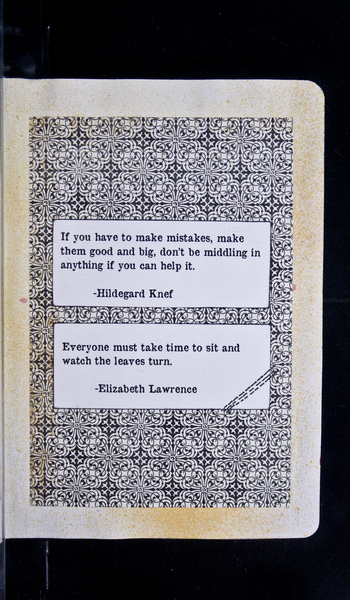 If you have to make mistakes, make
them good and big, don't be middling in
anything if you can help it.
-Hildegard Knef
Everyone must take time to sit and
watch the leaves turn.
-Elizabeth Lawrence